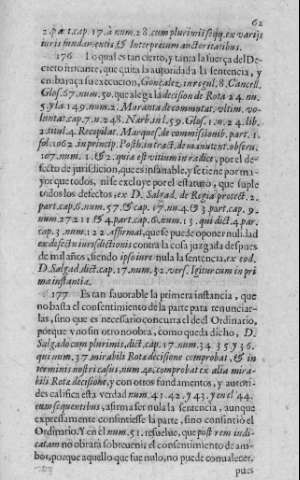 62
2. part. cap. 17. à num. 28. cum plurimis seqq. ex varijs
iuris fundamentis, & Interpretum auctoritatibus.
176 Lo qual es tan cierto, y tanta la fuerça del De-
creto irritante, que quita la autoridad a la sentencia, y
embaraça su execucion, Gonçalez, in regul. 8. Cancell.
Glos. 67. num. 50. que alega la decision de Rota 24. nu.
5. y la 149. num. 2. Maranta de commutat. vltim. vo-
luntat. cap. 7. n. 248. Narb. in l. 59. Glos. 1. n. 24. lib.
2. titul. 4. Recopilat. Marques. de commissionib. part. 1.
fol. 1062. in princip. Posth. intract. de manutent. observ.
107. num. 1. & 2. quia est vitium in radice, por el de-
fecto de jurisdicion, que es insanable, y se tiene por ma-
yor que todos, ni se excluye por el estatuto, que suple
todos los defectos, ex D. Salgad. de Regia protect. 2.
part. cap. 6. num. 57. & cap. 17. nu. 4. & 3. part. cap. 9.
num. 272 11. & 4. part. cap. 6. num. 13. qui dict. 4. par.
cap. 3. num. 122. affirmat, que se puede oponer nulidad
ex defectu iurisdictionis contra la cosa juzgada despues
de mil años, siendo ipso iure nula la sentencia, ex eod.
D. Salgad. dict. cap. 17. num. 32. vers. Igitur cum in pri
ma instantia.
177 Es tan fauorable la primera instancia, que
no basta el consentimiento de la parte para renunciar-
las, sino que es necessario concurra el del Ordinario,
porque y no sin otro no obra, como queda dicho, D.
Salgado cum plurimis, dict. cap. 17. num. 34. 35. y 36.
qui num. 37. mirabili Rotæ decisione comprobat, & in
terminis nostri casus, num. 40. comprobat ex alia mira-
bili Rotæ decisione, y con otros fundamentos, y autori-
des califica esta verdad num. 41. 42. y 43. y en el 44.
cum sequentibus, afirma ser nula la sentencia, aunque
expressamente consintiesse la parte, sino consintió el
Ordinario. Y en el num. 51. resuelue, que post rem iudi-
catam no obrará sobreuenir el consentimiento de am-
bos, porque aquello que fue nulo, no puede comualecer.
pues